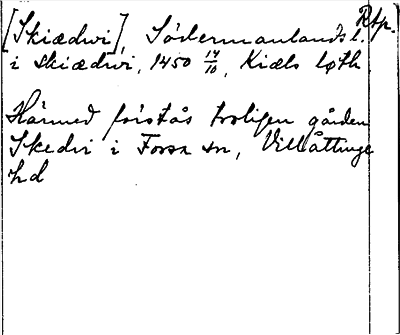 [Skiædwi], Södermanlands l. Rtp.
i skiædwi, 1450 14/10, Kiæls løth
Härmed förstås troligen gården
Skedvi i Forsa sn, Villåttinge
hd